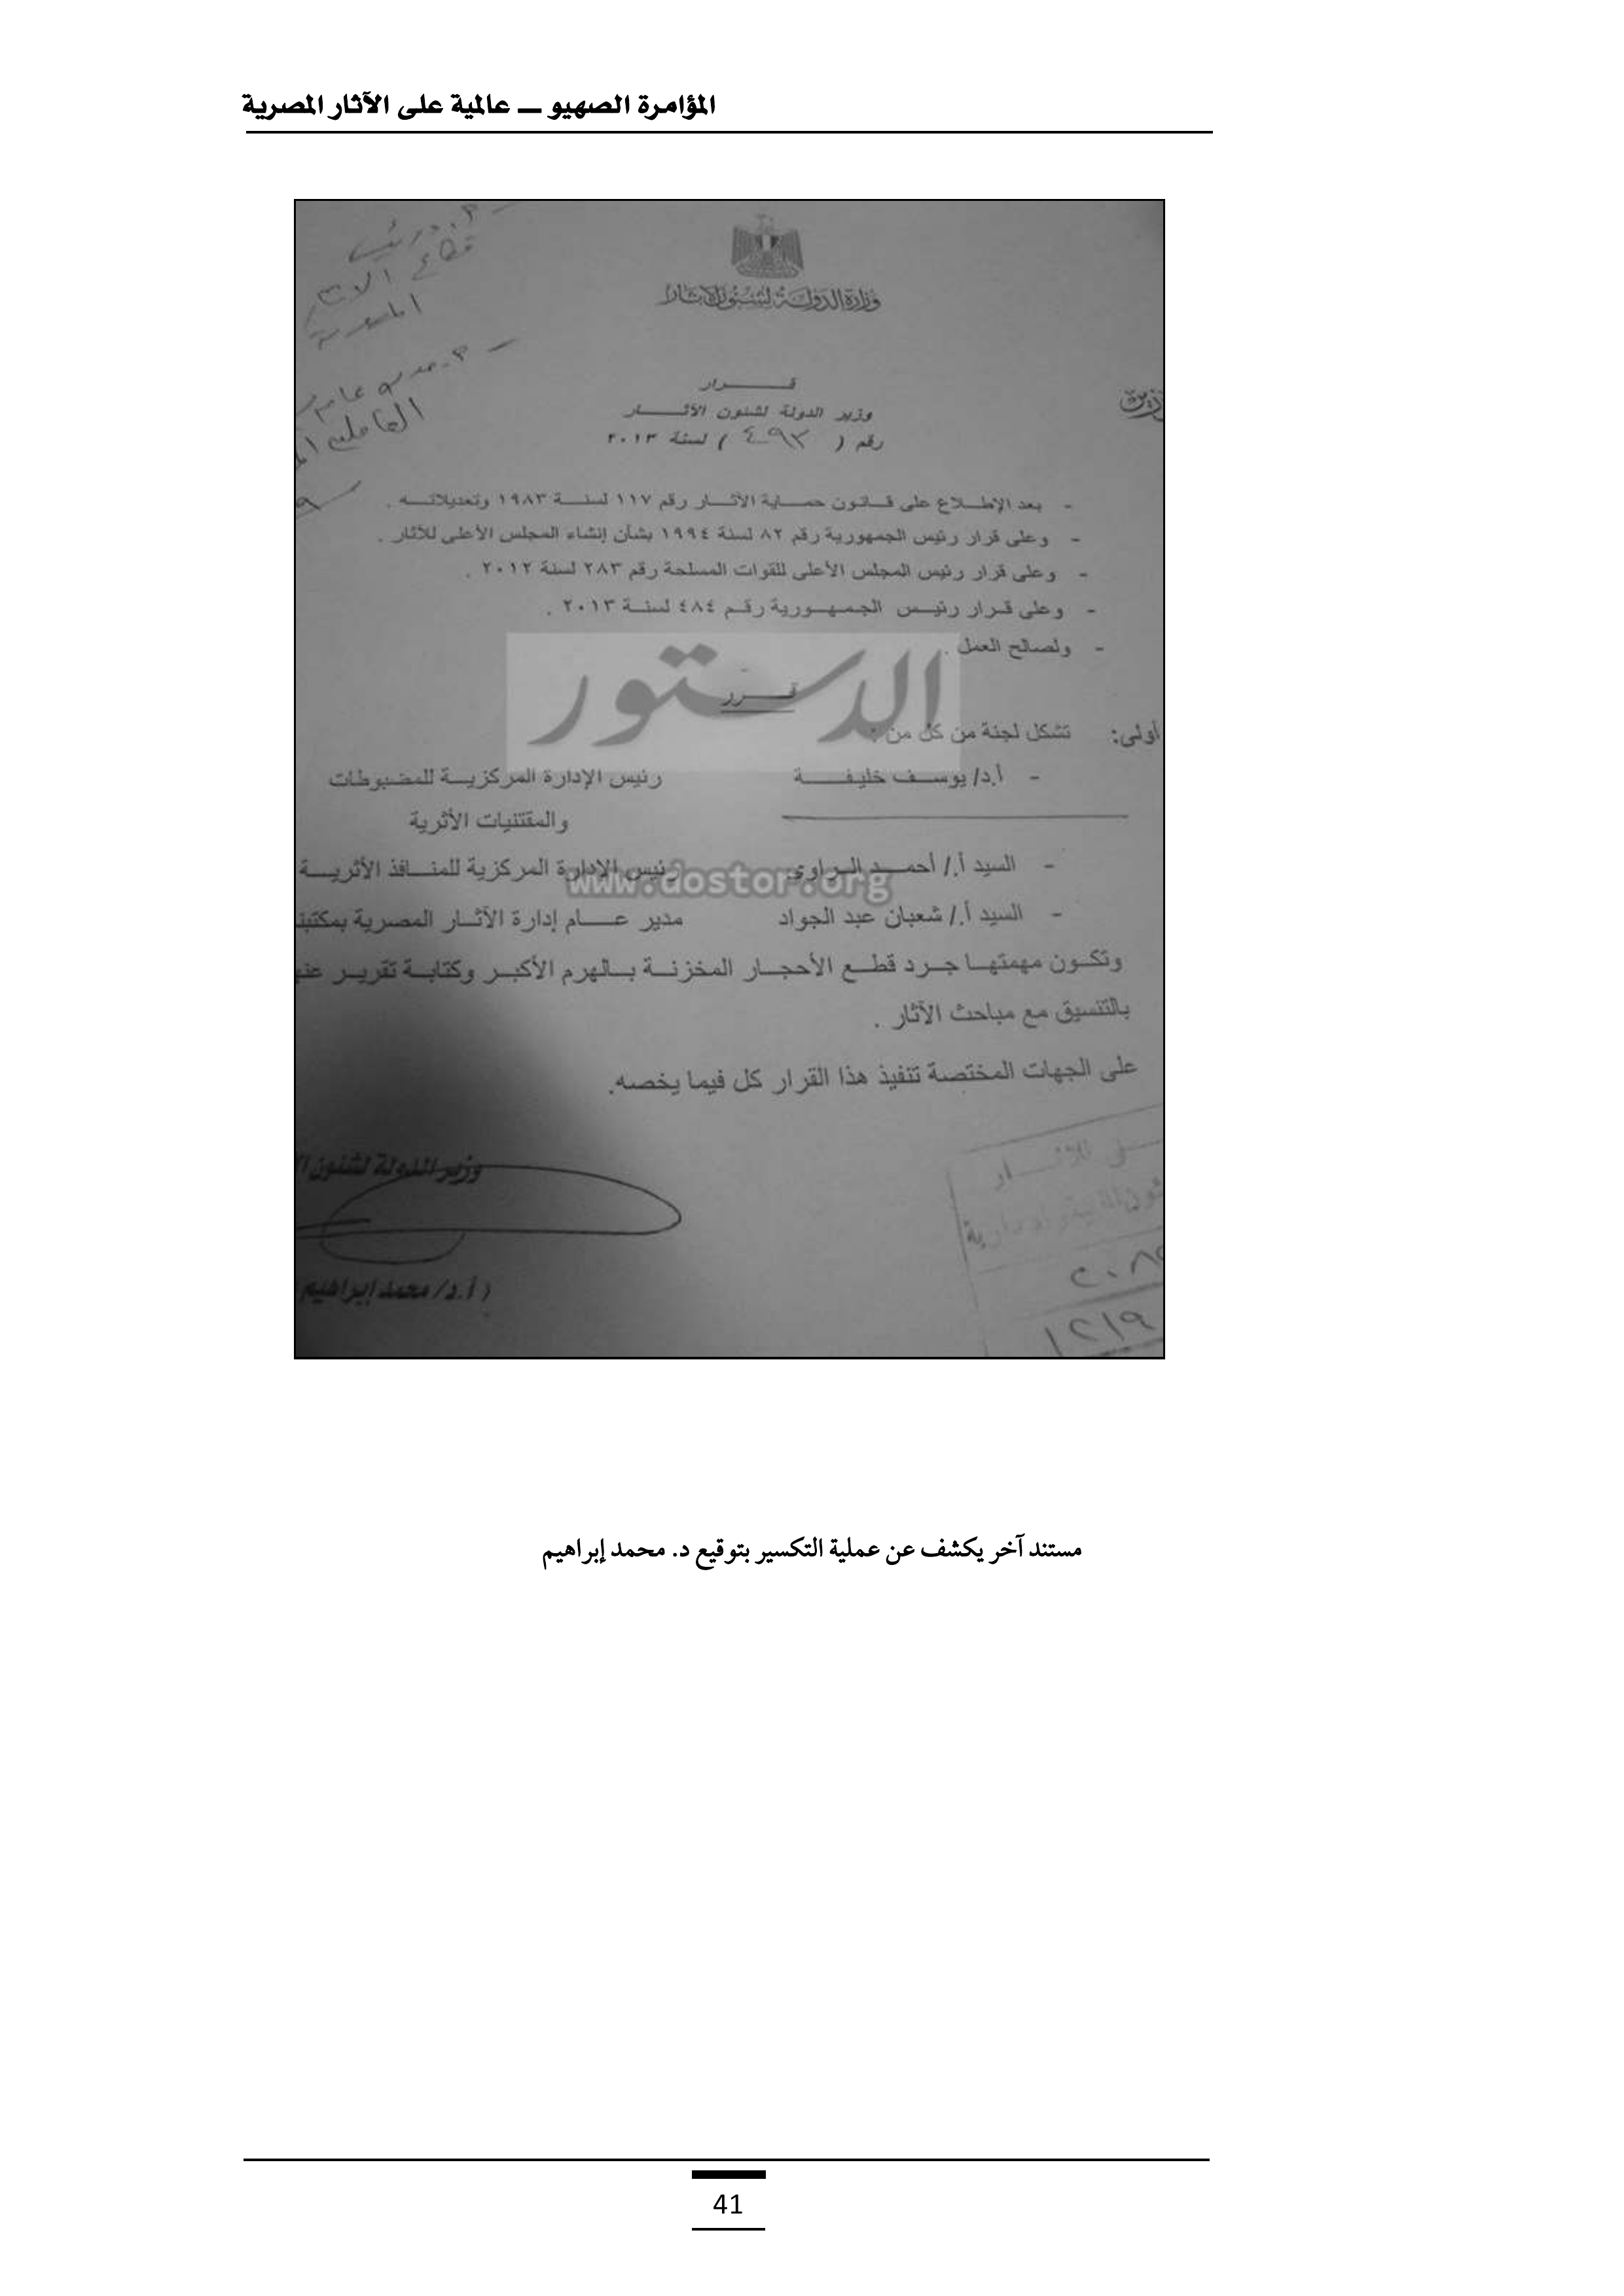 المؤامرة الصهيو ــ عالمية على الآثار المصرية
وزارة الدولة لشئون الآثار
قـــــرار
وزير الدولة لشئون الآثــــار
رقم ( ٤٩٣ ) لسنة ٢٠١٣
- بعد الإطـــلاع على قـــانون حمـــاية الآثـــار رقم ١١٧ لسنـــة ١٩٨٣ وتعديلاتـــه .
- وعلى قرار رئيس الجمهورية رقم ٨٢ لسنة ١٩٩٤ بشأن إنشاء المجلس الأعلى للآثار .
- وعلى قرار رئيس المجلس الأعلى للقوات المسلحة رقم ٢٨٣ لسنة ٢٠١٢ .
- وعلى قـرار رئيـس الجمـهـورية رقـم ٤٨٤ لسنـة ٢٠١٣ .
- ولصالح العمل .
الدستور
قـــرر
أولى: تشكل لجنة من كل من :
- أ.د/ يوســـف خليفـــــة رئيس الإدارة المركزيـــة للمضبوطات
والمقتنيات الأثرية
- السيد أ./ أحمـــد الـراوي رئيس الإدارة المركزية للمنـــافذ الأثريـــة
www.dostor.org
- السيد أ./ شعبان عبد الجواد مدير عـــام إدارة الآثـار المصرية
وتكـون مهمتهـا جـرد قطـع الأحجـار المخزنـة بـالهرم الأكبـر وكتابـة تقريـر
بالتنسيق مع مباحث الآثار .
على الجهات المختصة تنفيذ هذا القرار كل فيما يخصه.
وزير الدولة لشئون
( أ.د/ محمد إبراهيم
مستند آخر يكشف عن عملية التكسير بتوقيع د. محمد إبراهيم
41